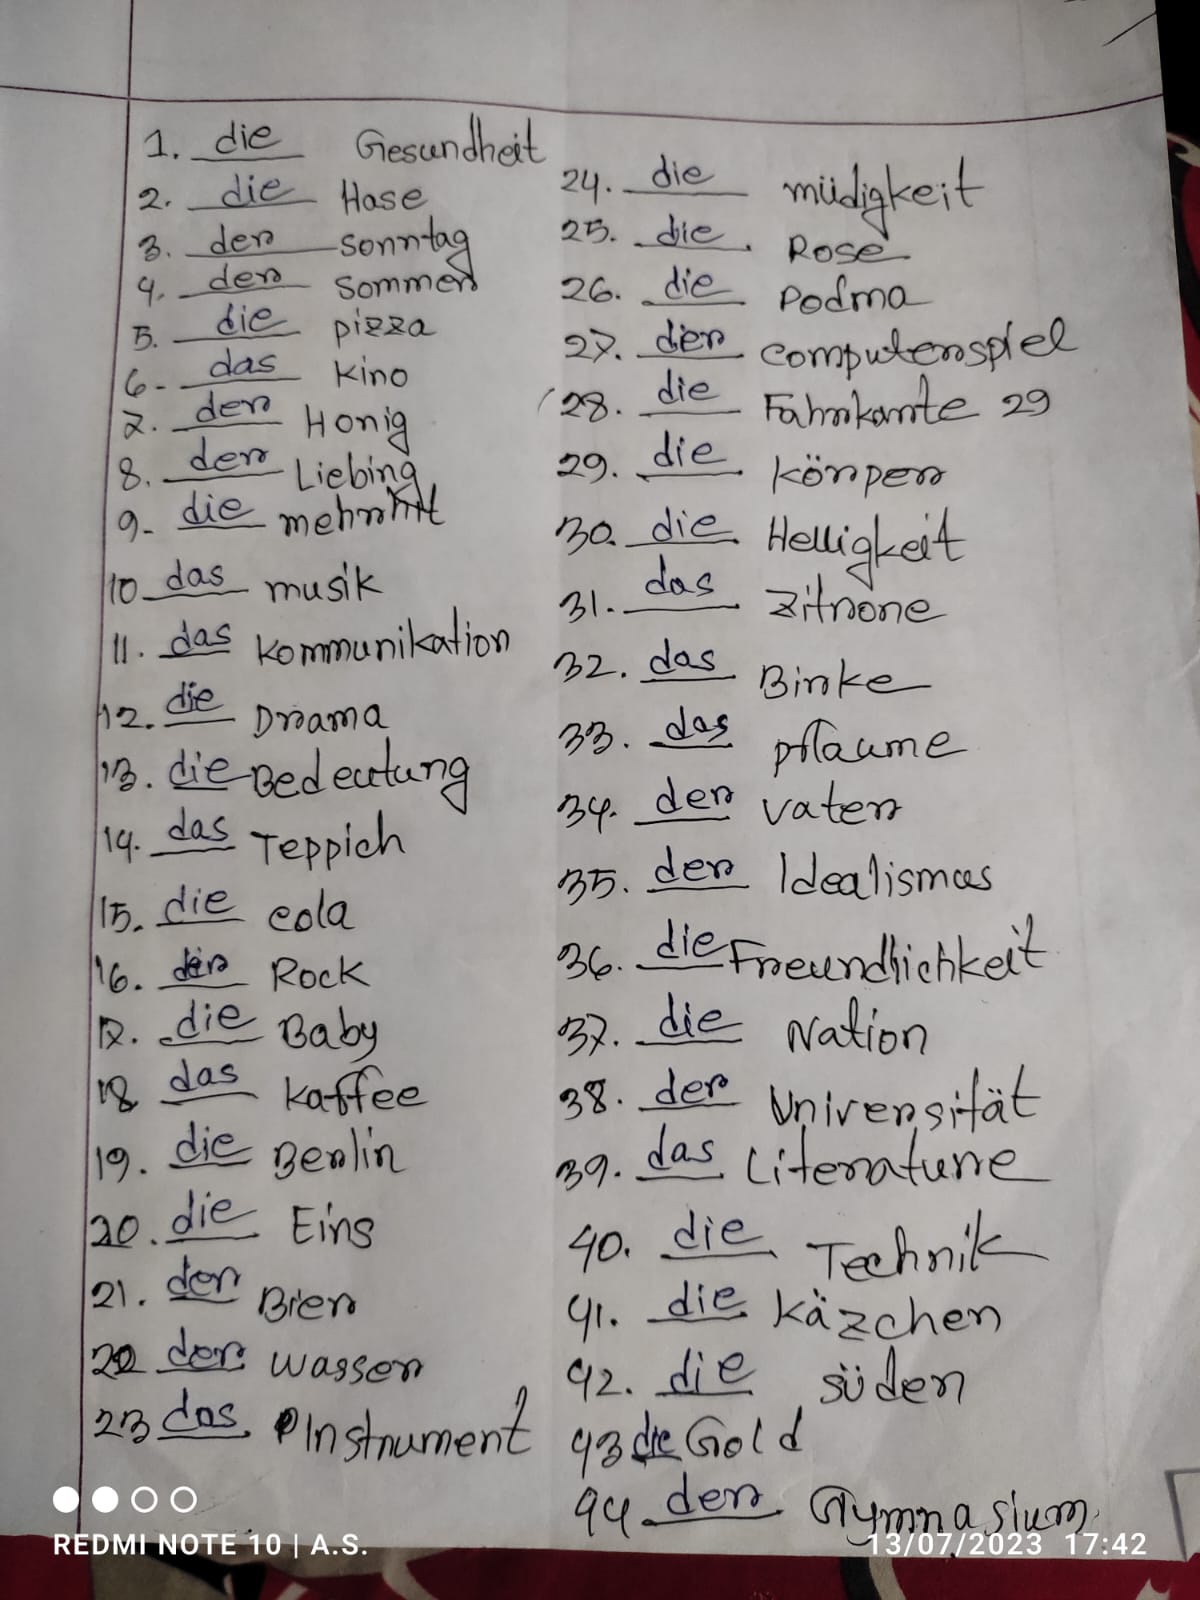 1. die Gesundheit
2. die Hase
3. der Sonntag
4. der Sommer
5. die pizza
6- das Kino
7. der Honig
8. der Liebing
9- die
10. das musik
11. das Kommunikation
12. die Drama
13. die Bedeutung
14. das Teppich
15. die cola
16. der Rock
17. die Baby
18 das Kaffee
19. die Berlin
20. die Eins
21. der Bier
22 der wasser
23 das Instrument
24. die müdigkeit
25. die Rose
26. die Podma
27. der computerspiel
28. die Fahrkarte 29
29. die Körper
30. die Helligkeit
31. das Zitrone
32. das Birke
33. das pflaume
34. der vater
35. der Idealismus
36. die Freundlichkeit
37. die Nation
38. der Universität
39. das Literature
40. die Technik
41. die Käzchen
42. die süden
43 die Gold
44 der Gymnasium
REDMI NOTE 10 | A.S.
13/07/2023 17:42